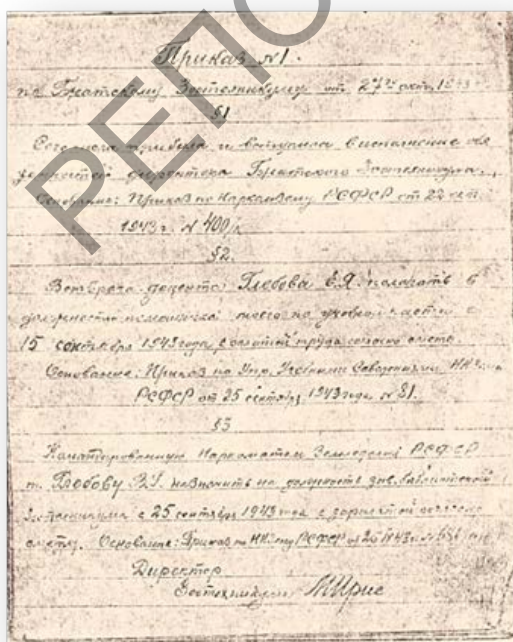 РЕПО
Приказ №1.
по Гжатскому Зоотехникуму от 27го окт. 1943
§1
Сего числа прибыла и вступила в исполнение обя
занностей директора Гжатского Зоотехникума.
Основание: Приказ по Наркомзему РСФСР от 22 сент.
1943 г. № 400/к
§2.
Ветврача доцента Глебова Е.Я. полагать в
должности помощника по учебной части с
15 сентября 1943 года, с оплатой труда согласно смете.
Основание: Приказ по Упр. Учебными Заведениями НКЗема
РСФСР от 25 сентября 1943 года № 81.
§3
Командированную Наркоматом Земледелия РСФСР
т. Глебову В.У. назначить на должность зав. библиотекой
Зоотехникума с 25 сентября 1943 года с зарплатой согласно
смету. Основание: Приказ по НКЗему РСФСР
Директор
Зоотехникума МИрис